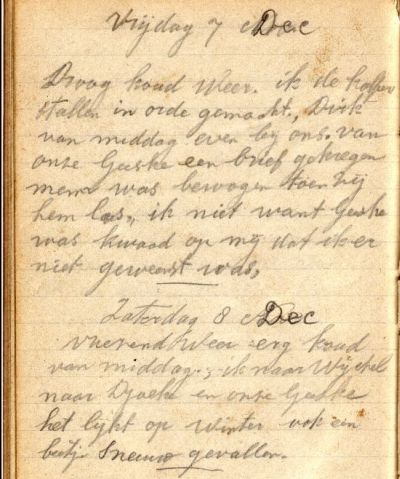 Vrijdag 7 Dec
Droog koud Weer. ik de kalver
stallen in orde gemaakt, Dirk
van middag even bij ons. van
onze Geeske een brief gekregen
mema was bewogen toen zij
hem las, ik niet want Geeske
was kwaad op mij dat ik er
niet geweest was,
Zaterdag 8 Dec
vriezend Weer erg koud
van middag, ik naar Wijckel
naar Djoeke en onze Geeske
het lijkt op Winter ook een
beetje sneeuw gevallen.